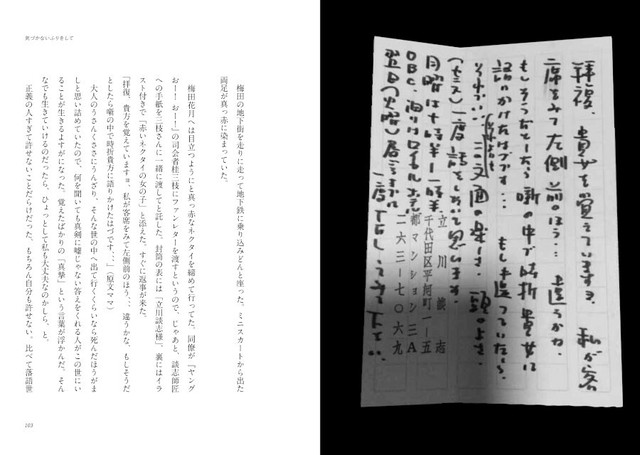 拝復、貴女を覚えていますョ、私が客
席をみて左側、前のほう…違うかな、
もしそうだとしたら噺の中で時折貴女に
語りかけたはずです…もし違っていたら
それでいい、この文面の楽しさ、頭のよさ、
(センス)一度話をしたいと思います、
月曜は十時半―一時半
OBC、はロイヤルホテル
翌日(火曜)昼ごろまでに
一度TELして下さい
立川談志
千代田区平河町一ー五
都マンション三A
二六三ー七〇六九
気づかないふりをして
梅田の地下街を走りに走って地下鉄に乗り込みどんと座った。ミニスカートから出た
両足が真っ赤に染まっていた。
梅田花月へは目立つようにと真っ赤なネクタイを締めて行ってた。同僚が『ヤング
おー！おー！』の司会者桂三枝にファンレターを渡すというので、じゃあと、談志師匠
への手紙を三枝さんに一緒に渡してと託した。封筒の表には「立川談志様」、裏にはイラ
スト付きで「赤いネクタイの女の子」と添えた。すぐに返事が来た。
「拝復、貴方を覚えていますョ。私が客席をみて左側前のほう、…違うかな。もしそうだ
としたら噺の中で時折貴方に語りかけたはづです、…」（原文ママ）
大人のうさんくささにうんざり、そんな世の中へ出て行くくらいなら死んだほうがま
しと思い詰めていたので、何を聞いても真剣に嘘じゃない答えをくれる人がこの世にい
ることが生きるよすがになった。覚えたばかりの「真摯」という言葉が浮かんだ。そん
なでも生きていけるのだったら、ひょっとして私も大丈夫なのかしら、と。
正義の人すぎて許せないことだらけだった。もちろん自分も許せない。比べて落語世
103